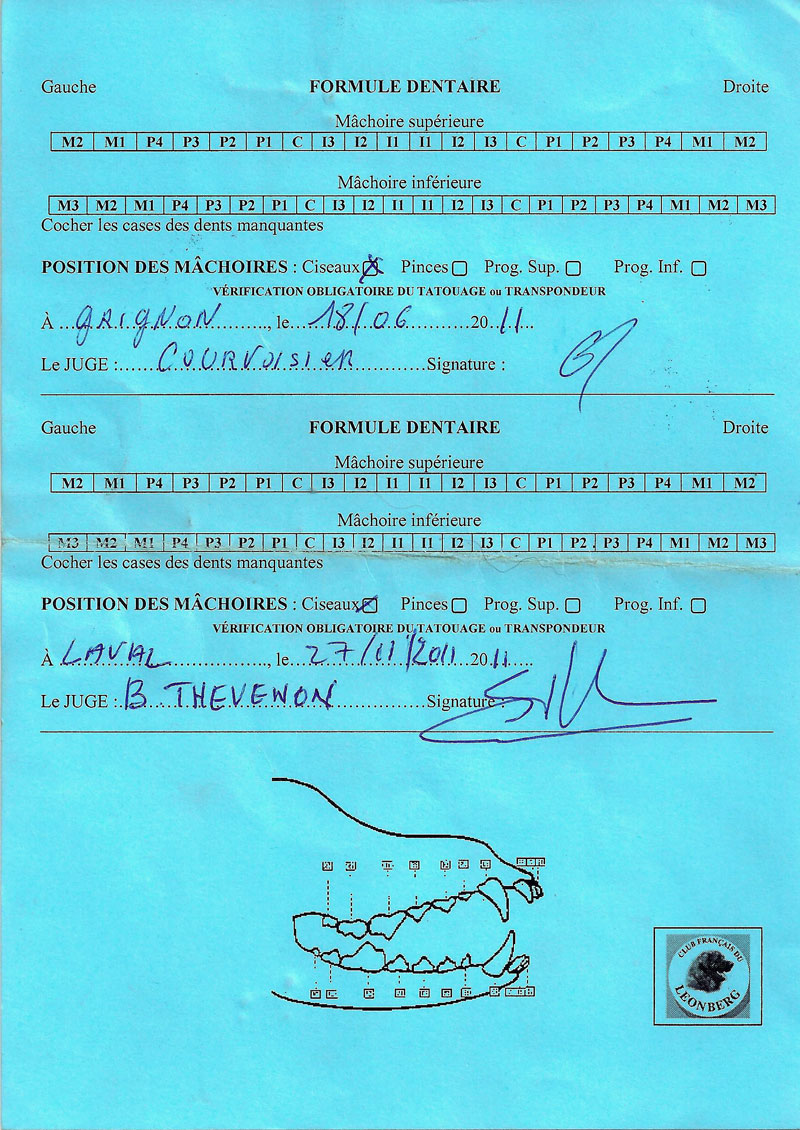 Gauche FORMULE DENTAIRE Droite
Mâchoire supérieure
M2 M1 P4 P3 P2 P1 C I3 I2 I1 I1 I2 I3 C P1 P2 P3 P4 M1 M2
Mâchoire inférieure
M3 M2 M1 P4 P3 P2 P1 C I3 I2 I1 I1 I2 I3 C P1 P2 P3 P4 M1 M2 M3
Cocher les cases des dents manquantes
POSITION DES MÂCHOIRES : Ciseaux Pinces Prog. Sup. Prog. Inf.
VÉRIFICATION OBLIGATOIRE DU TATOUAGE ou TRANSPONDEUR
À GRIGNON, le 18/06 2011
Le JUGE : COURVOISIER Signature :
Gauche FORMULE DENTAIRE Droite
Mâchoire supérieure
M2 M1 P4 P3 P2 P1 C I3 I2 I1 I1 I2 I3 C P1 P2 P3 P4 M1 M2
Mâchoire inférieure
M3 M2 M1 P4 P3 P2 P1 C I3 I2 I1 I1 I2 I3 C P1 P2 P3 P4 M1 M2 M3
Cocher les cases des dents manquantes
POSITION DES MÂCHOIRES : Ciseaux Pinces Prog. Sup. Prog. Inf.
VÉRIFICATION OBLIGATOIRE DU TATOUAGE ou TRANSPONDEUR
À LAVAL, le 27/11/2011 2011
Le JUGE : B THEVENON Signature
CLUB FRANÇAIS DU
LEONBERG